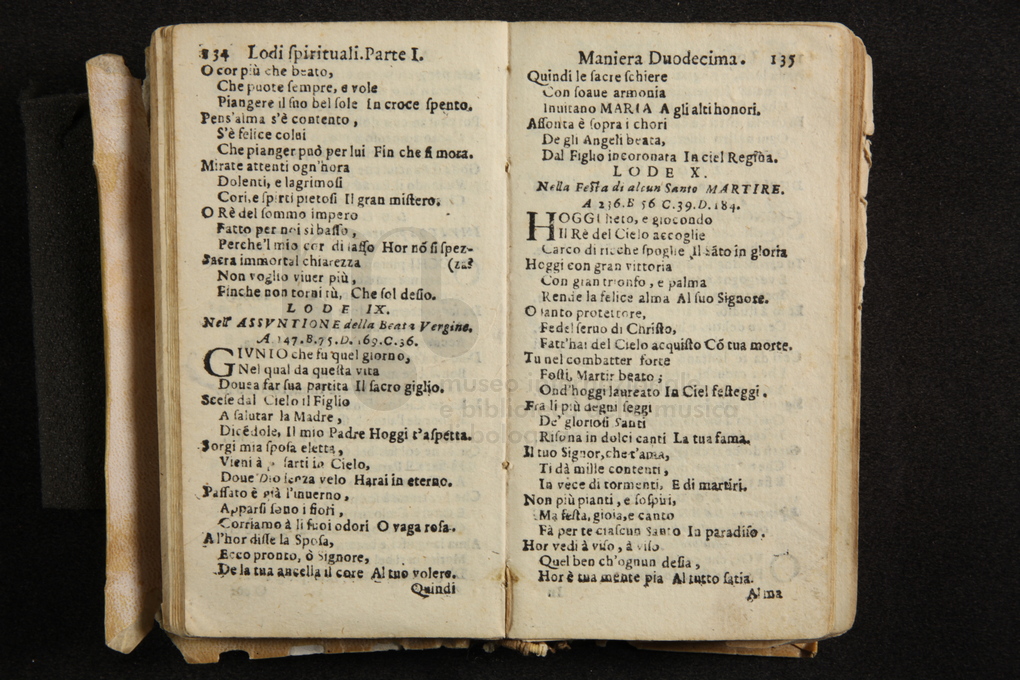 134 Lodi ſpirituali. Parte I.
O cor più che beato,
Che puote ſempre, e vole
Piangere il ſuo bel ſole In croce ſpento.
Pens'alma s'è contento,
S'è felice colui
Che pianger può per lui Fin che ſi mora.
Mirate attenti ogn'hora
Dolenti, e lagrimoſi
Cori, e ſpirti pietoſi Il gran miſtero.
O Rè del ſommo impero
Fatto per noi sì baſſo,
Perche'l mio cor di ſaſſo Hor nõ ſi ſpez-
Sacra immortal chiarezza (za?
Non voglio viuer più,
Finche non torni tù, Che ſol deſio.
LODE IX.
Nell' ASSVNTIONE della Beata Vergine.
A. 147. B. 75. D. 169. C. 36.
GIVNIO che fu quel giorno,
Nel qual da queſta vita
Douea far ſua partita Il ſacro giglio.
Sceſe dal Cielo il Figlio
A ſalutar la Madre,
Dicẽdole, Il mio Padre Hoggi t'aſpetta.
Sorgi mia ſpoſa eletta,
Vieni à ſarti in Cielo,
Doue Dio ſenza velo Harai in eterno.
Paſſato è già l'inuerno,
Apparſi ſono i fiori,
Corriamo à li ſuoi odori O vaga roſa.
Al'hor diſſe la Spoſa,
Ecco pronto, ò Signore,
De la tua ancella il core Al tuo volere.
Quindi
Maniera Duodecima. 135
Quindi le ſacre ſchiere
Con ſoaue armonia
Inuitano MARIA A gli alti honori.
Aſſonta è ſopra i chori
De gli Angeli beata,
Dal Figlio incoronata In ciel Regina.
LODE X.
Nella Feſta di alcun Santo MARTIRE.
A 236. B 56 C. 39. D. 184.
HOGGI lieto, e giocondo
Il Rè del Cielo accoglie
Carco di ricche ſpoglie Il sãto in gloria
Hoggi con gran vittoria
Con gran trionfo, e palma
Rende la felice alma Al ſuo Signore.
O ſanto protettore,
Fedel ſeruo di Chriſto,
Fatt'hai del Cielo acquiſto Cõ tua morte.
Tu nel combatter forte
Foſti, Martir beato;
Ond'hoggi laureato In Ciel feſteggi.
Fra li più degni ſeggi
De' glorioſi Santi
Riſona in dolci canti La tua fama.
Il tuo Signor, che t'ama,
Ti dà mille contenti,
In vece di tormenti, E di martiri.
Non più pianti, e ſoſpiri,
Ma feſta, gioia, e canto
Fà per te ciaſcun Santo In paradiſo.
Hor vedi à viſo, à viſo
Quel ben ch'ognun deſia,
Hor è tua mente pia Al tutto ſatia.
Alma
museo
e biblioteca della musica
di bologna